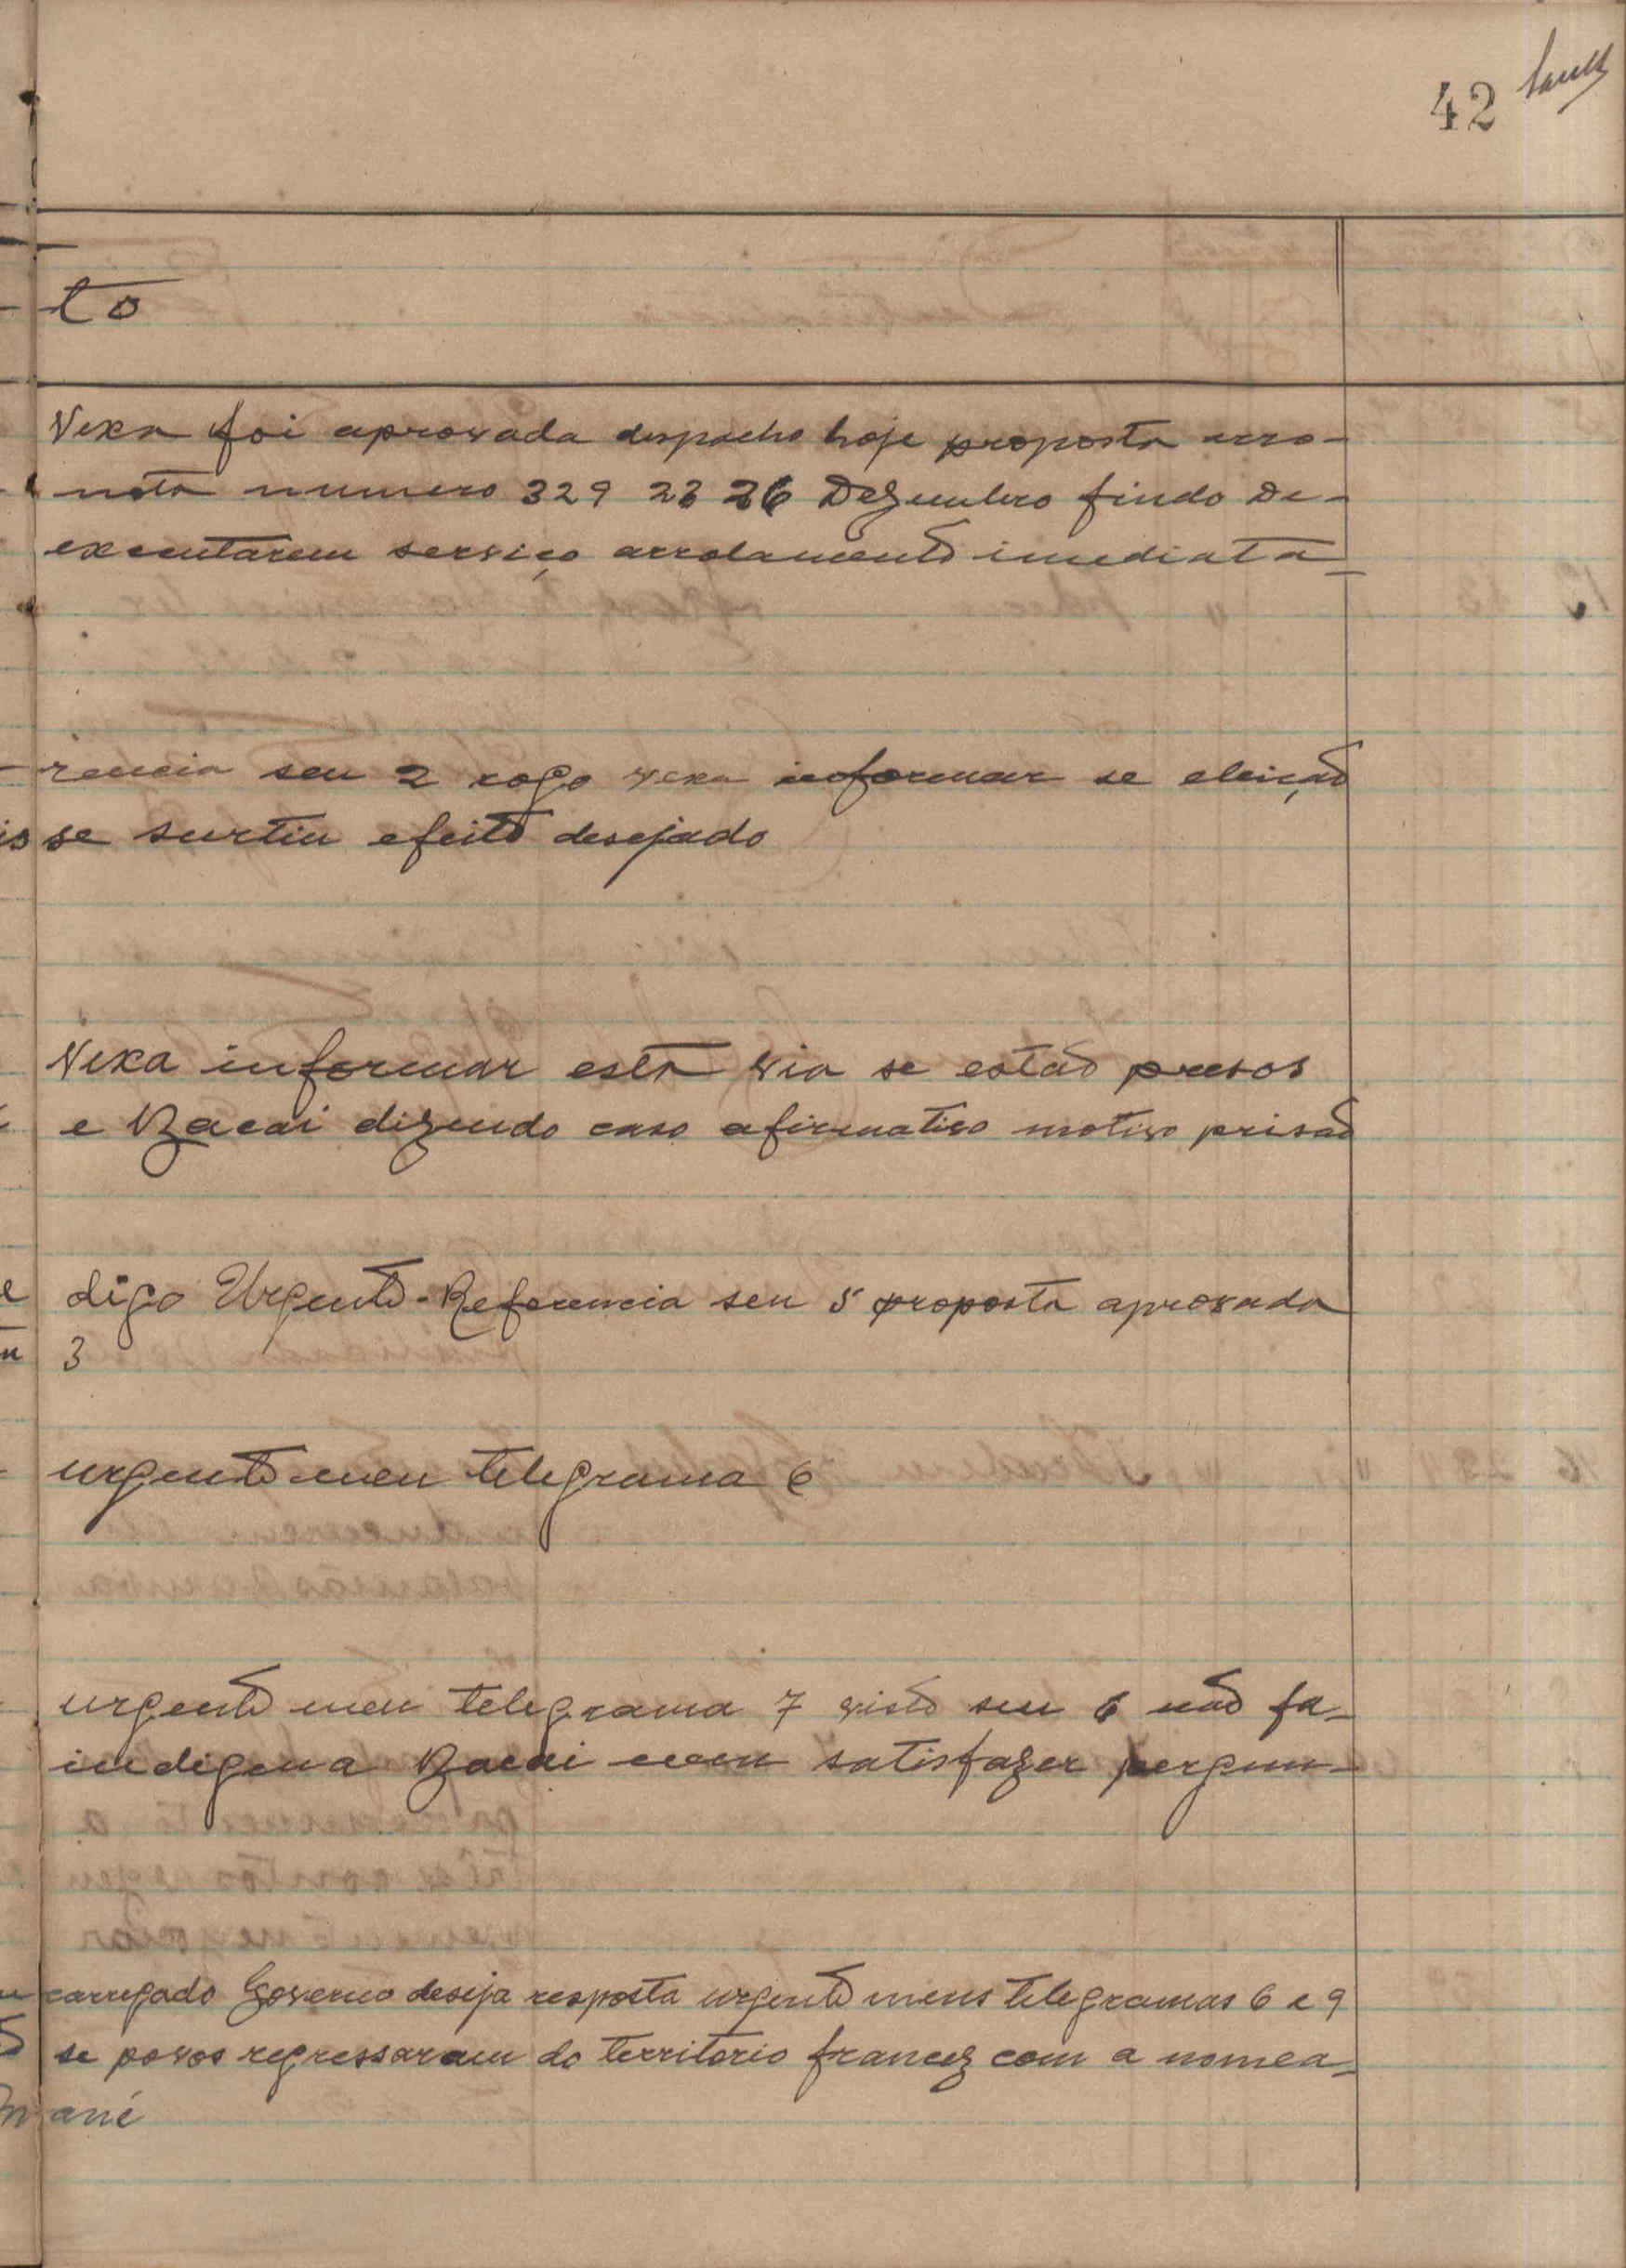 42
to
Vexa foi aprovada despacho hoje proposta
nota numero 329 23 26 Dezembro findo De-
executarem serviço arrolamento imediata-
rencia seu 2 rogo vexa informar se eleição
se surtiu efeito desejado
Vexa informar esta via se estão presos
e Bacai dizendo caso afirmativo motivo prisão
digo Urgente-Referencia seu 5 proposta aprovada
3
urgente meu telegrama 6
urgente meu telegrama 7 visto seu 6 não fa-
indigena Bacai nem satisfazer pergun-
carregado Governo deseja resposta urgente meus telegramas 6 e 9
se povos regressaram do territorio francez com a nomea-
ané